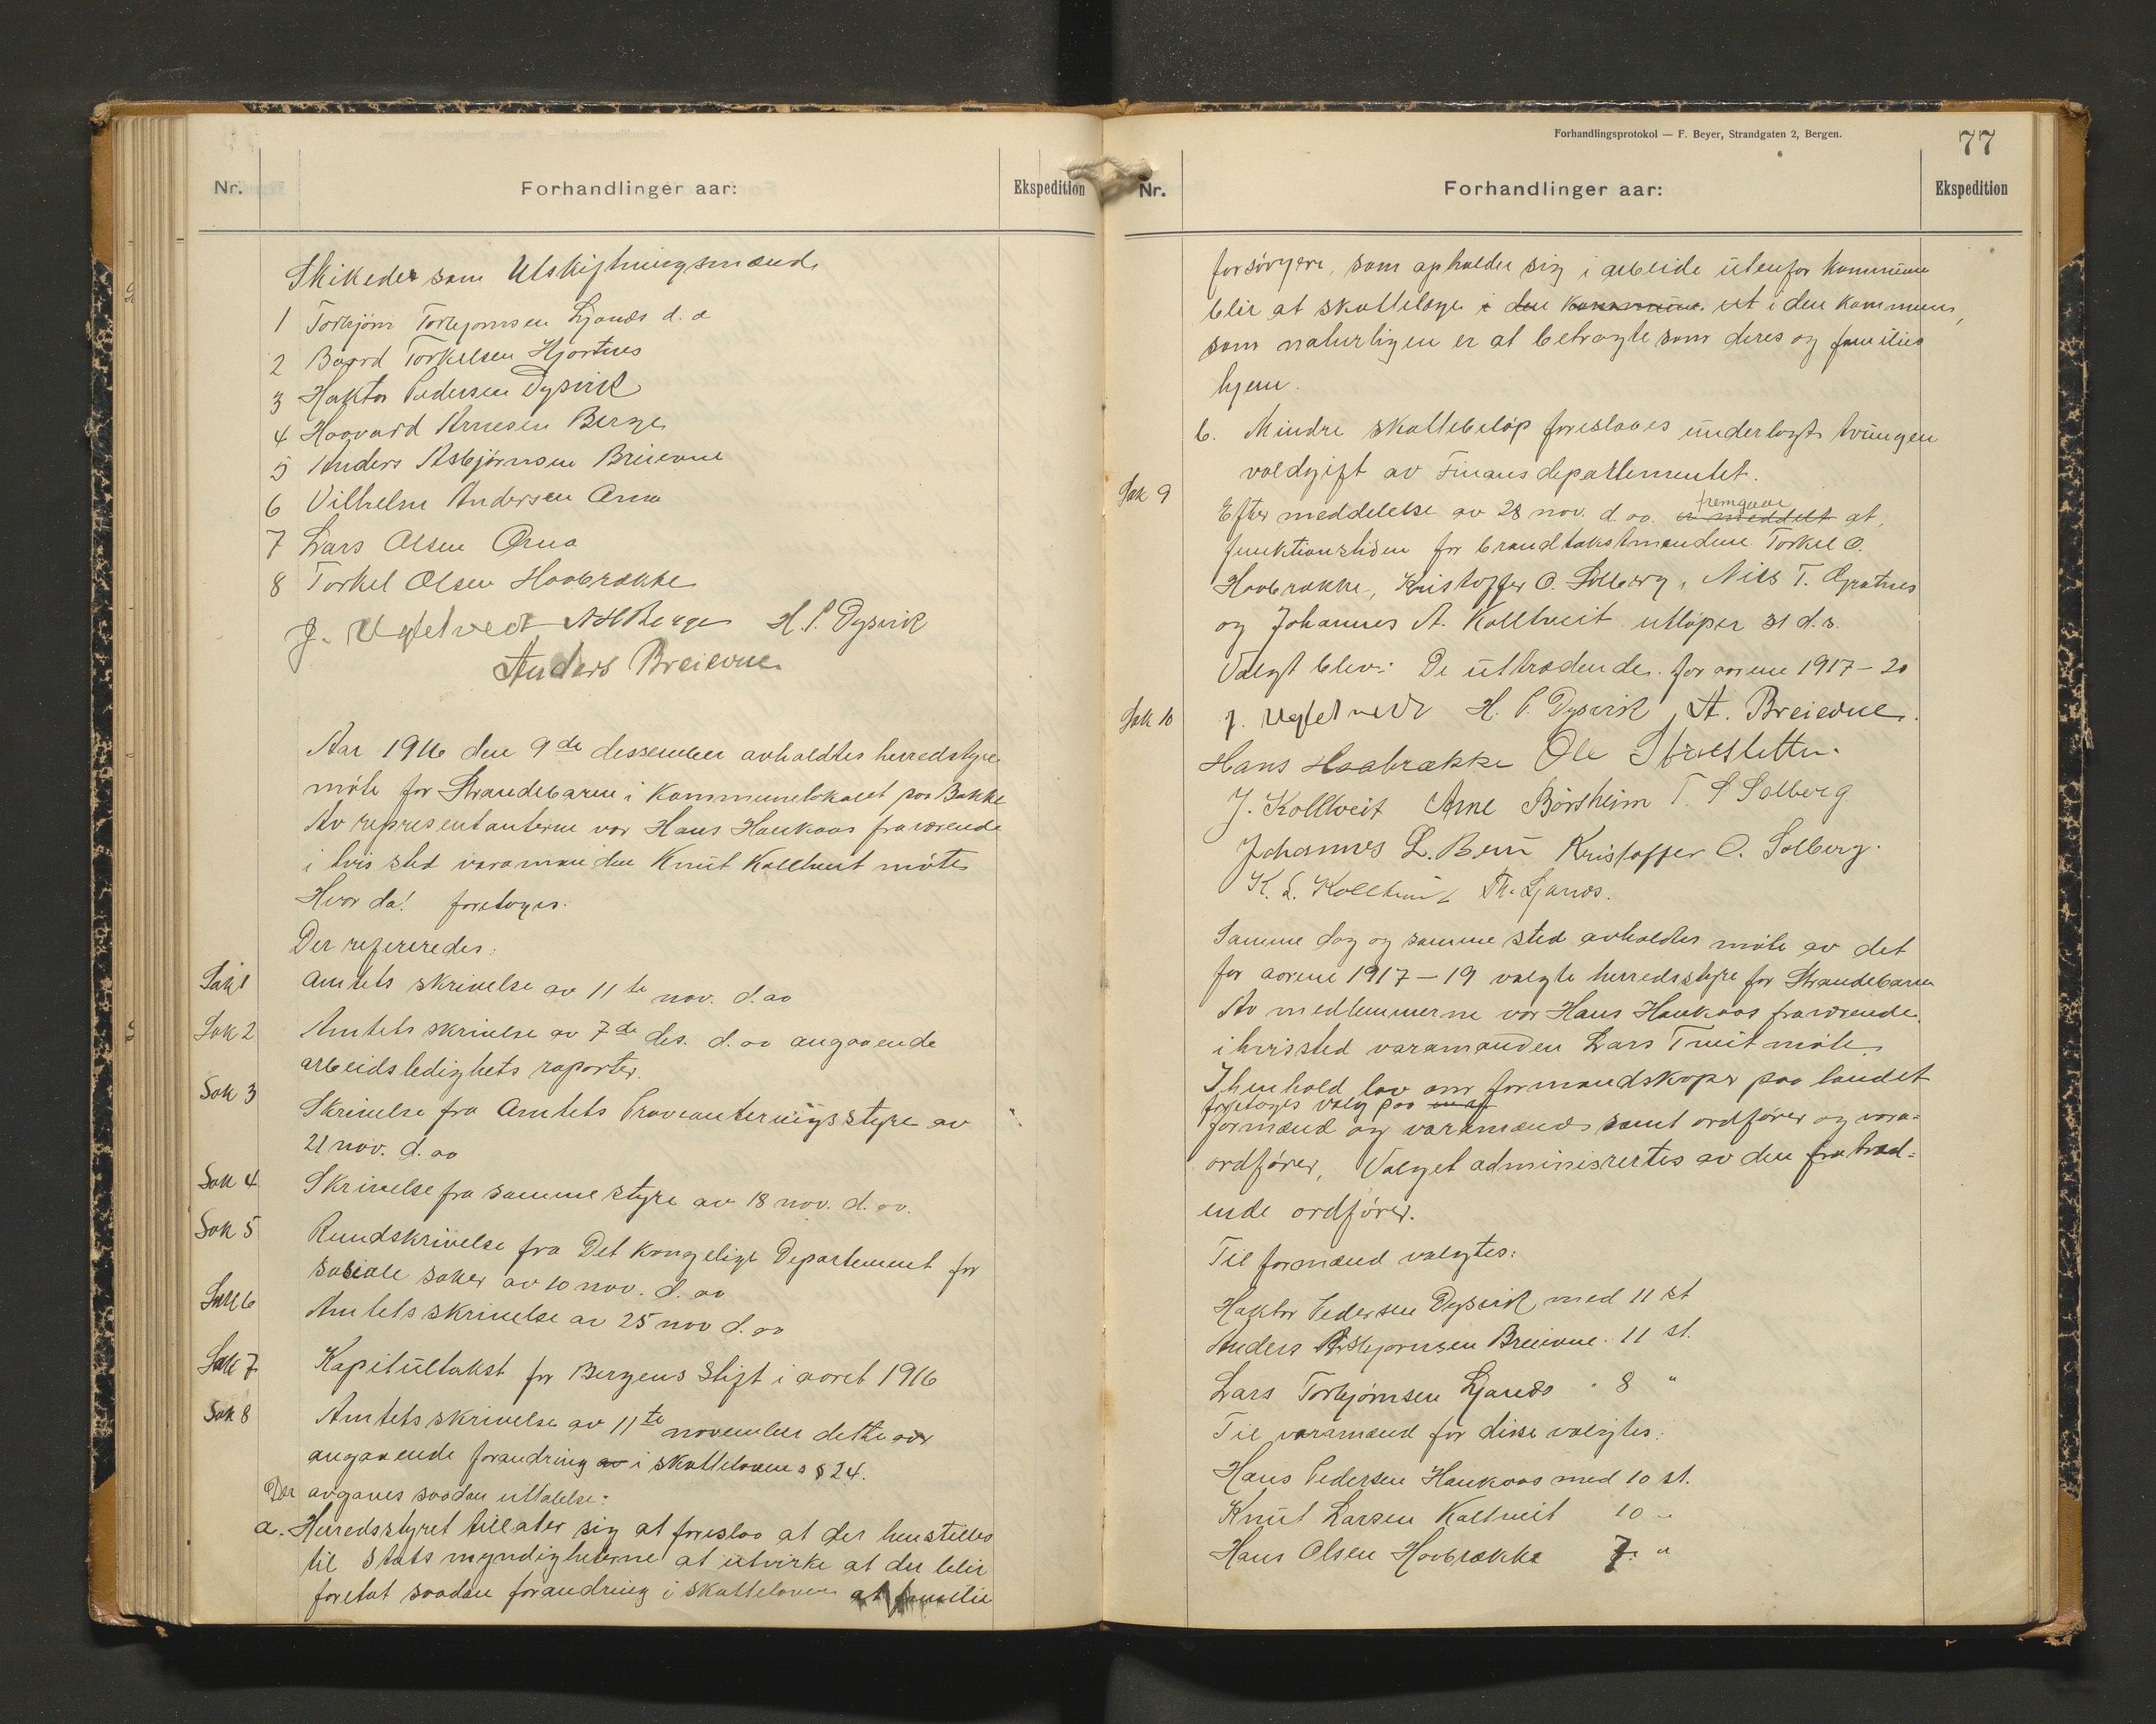 Nr.
Forhandlinger aar:
Ekspedition
Skikedes som Utskiftningsmænd
1 Torbjørn Torbjørnsen Ljones d. a
2 Baard Torkelsen Hjartnes
3 Haktor Pedersen Dysvik
4 Haavard Arnesen Berge
5 Anders Asbjørnsen Breievne
6 Vilhelm Andersen Oma
7 Lars Olsen Oma
8 Torkel Olsen Haabrække
J. Ugletveit A H Berge H. P. Dysvik
Anders Breievne
Aar 1916 den 9de dessember avholdtes herredstyre
møte for Strandebarm i Kommunelokalet paa Bakke
Av representanterne var Hans Haukaas fraværende
i hvis sted varamanden Knut Kolltveit møtte
Hvor da! foretoges:
Der refereredes:
Sak 1
Amtets skrivelse av 11te nov. d. aa
Sak 2
Amtets skrivelse av 7de des. d. aa angaaende
arbeidsledighets raporter.
Sak 3
Skrivelse fra Amtets Proveanteringsstyre av
21 nov. d. aa
Sak 4
Skrivelse fra samme styre av 18 nov. d. aa.
Sak 5
Rundskrivelse fra Det kongelige Departement for
sosiale saker av 10 nov. d. aa
Sak 6
Amtets skrivelse av 25 nov d. aa
Sak 7
Kapitultakst for Bergens Stift i aaret 1916
Sak 8
Amtets skrivelse av 11te november dette aar
angaaende forandring av i skattelovens § 24.
Der avgaves saadan uttalelse:
a. Herredsstyret tillater sig at foreslaa at der henstilles
til Statsmyndigheterne at utvirke at der blir
foretat saadan forandring i skatteloven at familie
Forhandlingsprotokol — F. Beyer, Strandgaten 2, Bergen.
77
Nr.
Forhandlinger aar:
Ekspedition
forsørgere, som opholder sig i arbeide utenfor kommune
blir at skattelægge i den kommune. ut i den kommune,
som naturligen er at betragte som deres og families
hjem.
b. Mindre skattebeløp foreslaaes underlagt tvungen
voldgift av Finansdepartementet.
Sak 9
fremgaar
Efter meddelelse av 28 nov. d. aa. er meddelt at
funktionstiden for brandtakstmændene Torkel O.
Haabrække, Kristoffer O. Solberg, Nils T.
og Johannes A. Kolltveit utløper 31 d. s.
Valgt blev: De uttrædende for aarene 1917 – 20
Sak 10
J. Ugletveit H. P. Dysvik, A. Breievne.
Hans Haabrække Ole
J. Kolltveit Arne Børsheim T. S Solberg
Johannes L. Kristoffer O. Solberg.
K. L. Kolltveit Th. Ljones.
Samme dag og samme sted avholdtes møte av det
for aarene 1917 – 19 valgte herredsstyre for Strandebarm
Av medlemmerne var Hans Haukaas fraværende.
i hvis sted varamanden Lars Tveit møtte.
I henhold lov om formandskaper paa landet
foretoges valg paa
formænd og varamænd samt ordfører og vara=
ordfører, Valget adminisrertes av den fratræd=
ende ordfører.
Til formænd valgtes:
Haktor Pedersen Dysvik med 11 st
Anders Asbjørnsen Breievne " 11 st.
Lars Torbjørnsen Ljones " 8 "
Til varamænd for disse valgtes:
Hans Pedersen Haukaas med 10 st.
Knut Larsen Koltveit 10 "
Hans Olsen Haabrække 7 "